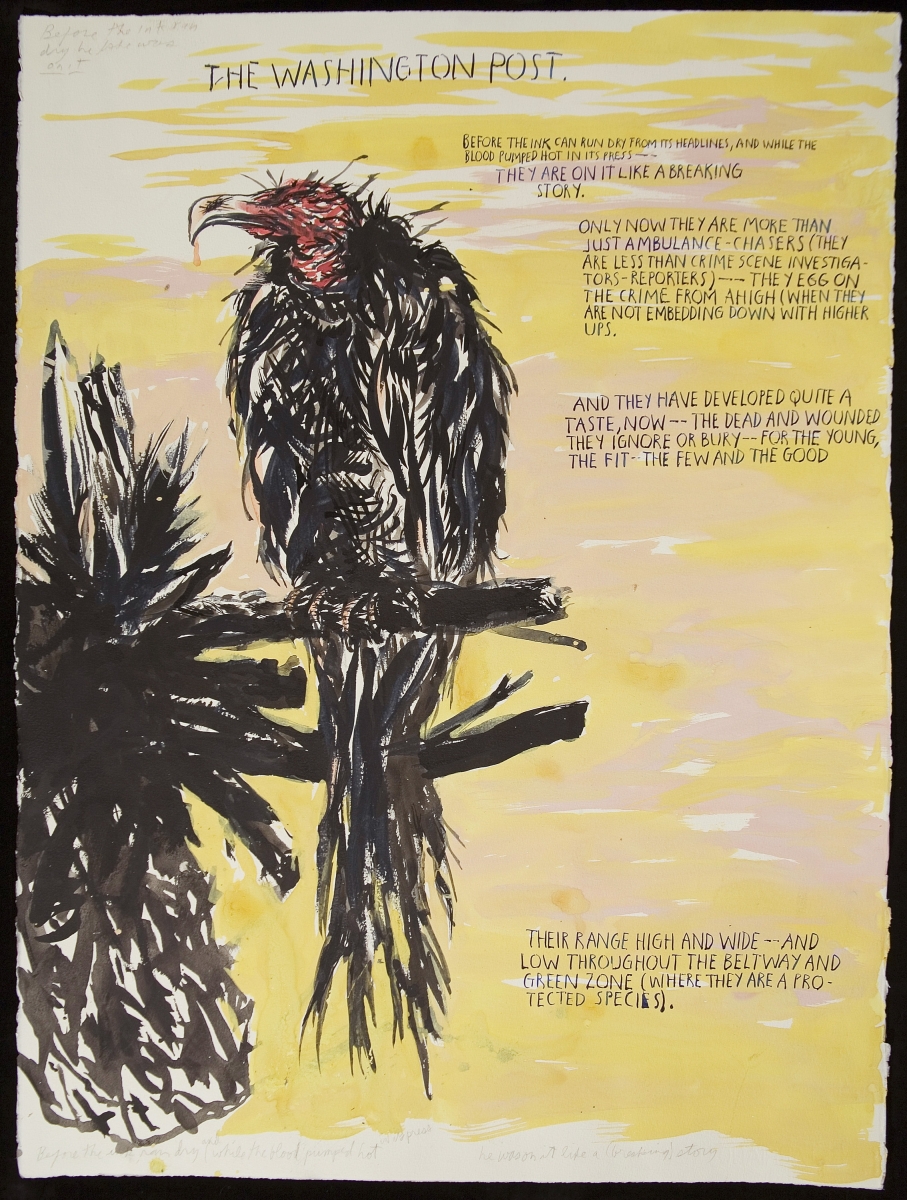 Before the ink ran
dry he
on it
THE WASHINGTON POST.
BEFORE THE INK CAN RUN DRY FROM ITS HEADLINES, AND WHILE THE
BLOOD PUMPED HOT IN ITS PRESS --
THEY ARE ON IT LIKE A BREAKING
STORY.
ONLY NOW THEY ARE MORE THAN
JUST AMBULANCE-CHASERS (THEY
ARE LESS THAN CRIME SCENE INVESTIGA-
TORS-REPORTERS) --- THEY EGG ON
THE CRIME FROM AHIGH (WHEN THEY
ARE NOT EMBEDDING DOWN WITH HIGHER
UPS.
AND THEY HAVE DEVELOPED QUITE A
TASTE, NOW -- THE DEAD AND WOUNDED
THEY IGNORE OR BURY -- FOR THE YOUNG,
THE FIT -- THE FEW AND THE GOOD
THEIR RANGE HIGH AND WIDE -- AND
LOW THROUGHOUT THE BELTWAY AND
GREEN ZONE (WHERE THEY ARE A PRO-
TECTED SPECIES).
Before the ink ran dry and while the blood pumped hot
he was on it like a (breaking) story